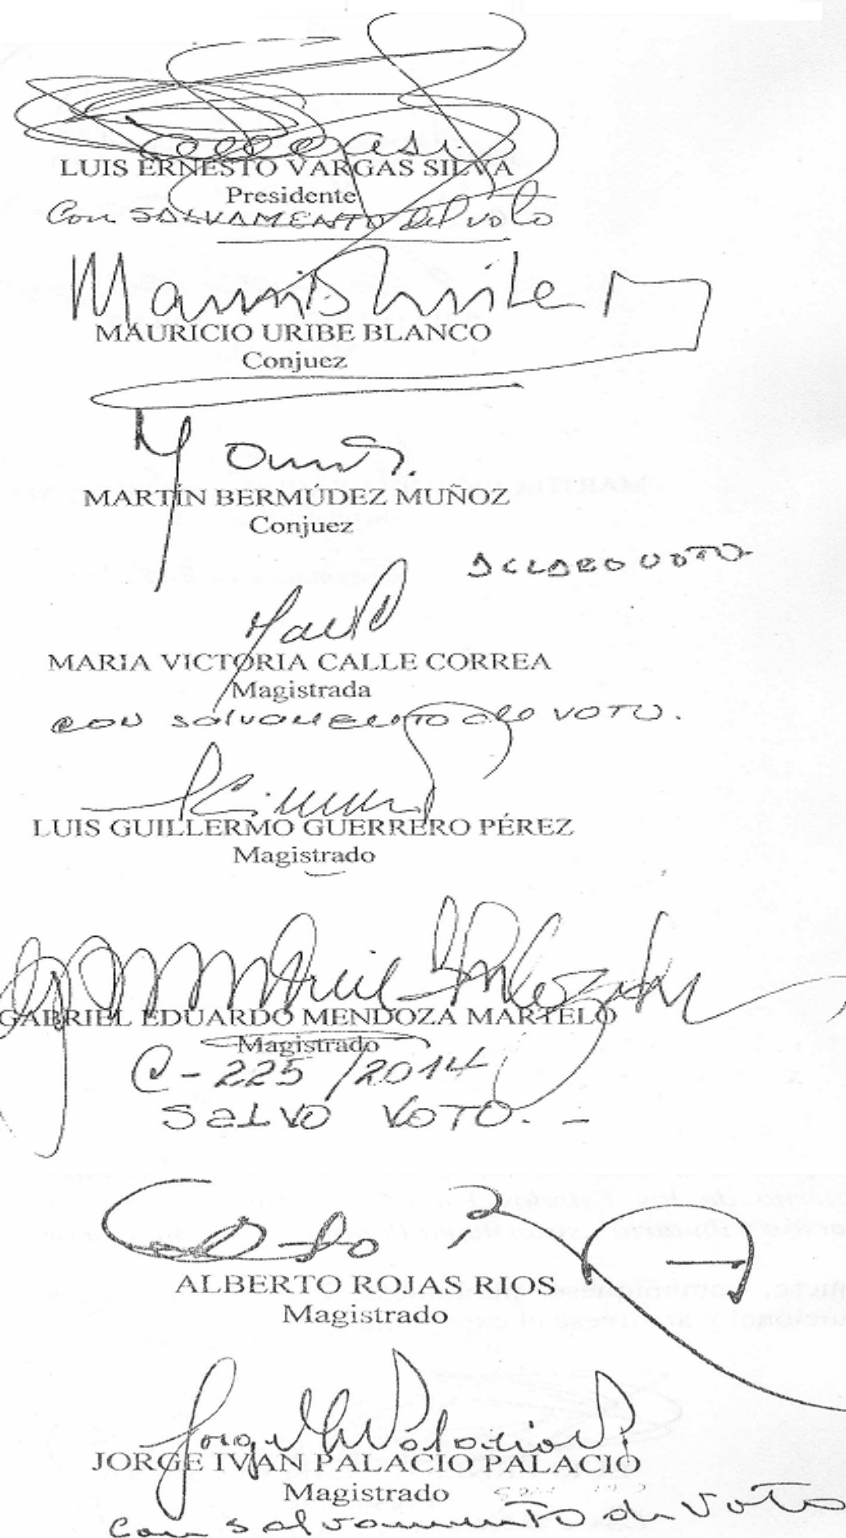 LUIS ERNESTO VARGAS SILVA
Presidente
Con SALVAMENTO del voto
MAURICIO URIBE BLANCO
Conjuez
MARTÍN BERMÚDEZ MUÑOZ
Conjuez
ACLARO VOTO
MARIA VICTORIA CALLE CORREA
Magistrada
con salvamento de VOTO.
LUIS GUILLERMO GUERRERO PÉREZ
Magistrado
GABRIEL EDUARDO MENDOZA MARTELO
Magistrado
C-225/2014
SALVO VOTO. -
ALBERTO ROJAS RIOS
Magistrado
JORGE IVÁN PALACIO PALACIO
Magistrado
con salvamento de voto